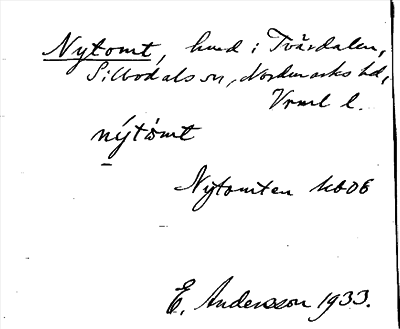 Nytomt, hmd i Tvärdalen,
Silbodals sn, Nordmarks hd,
Vrml l.
nýtòmt
Nytomten kbOE
E. Andersson 1933.